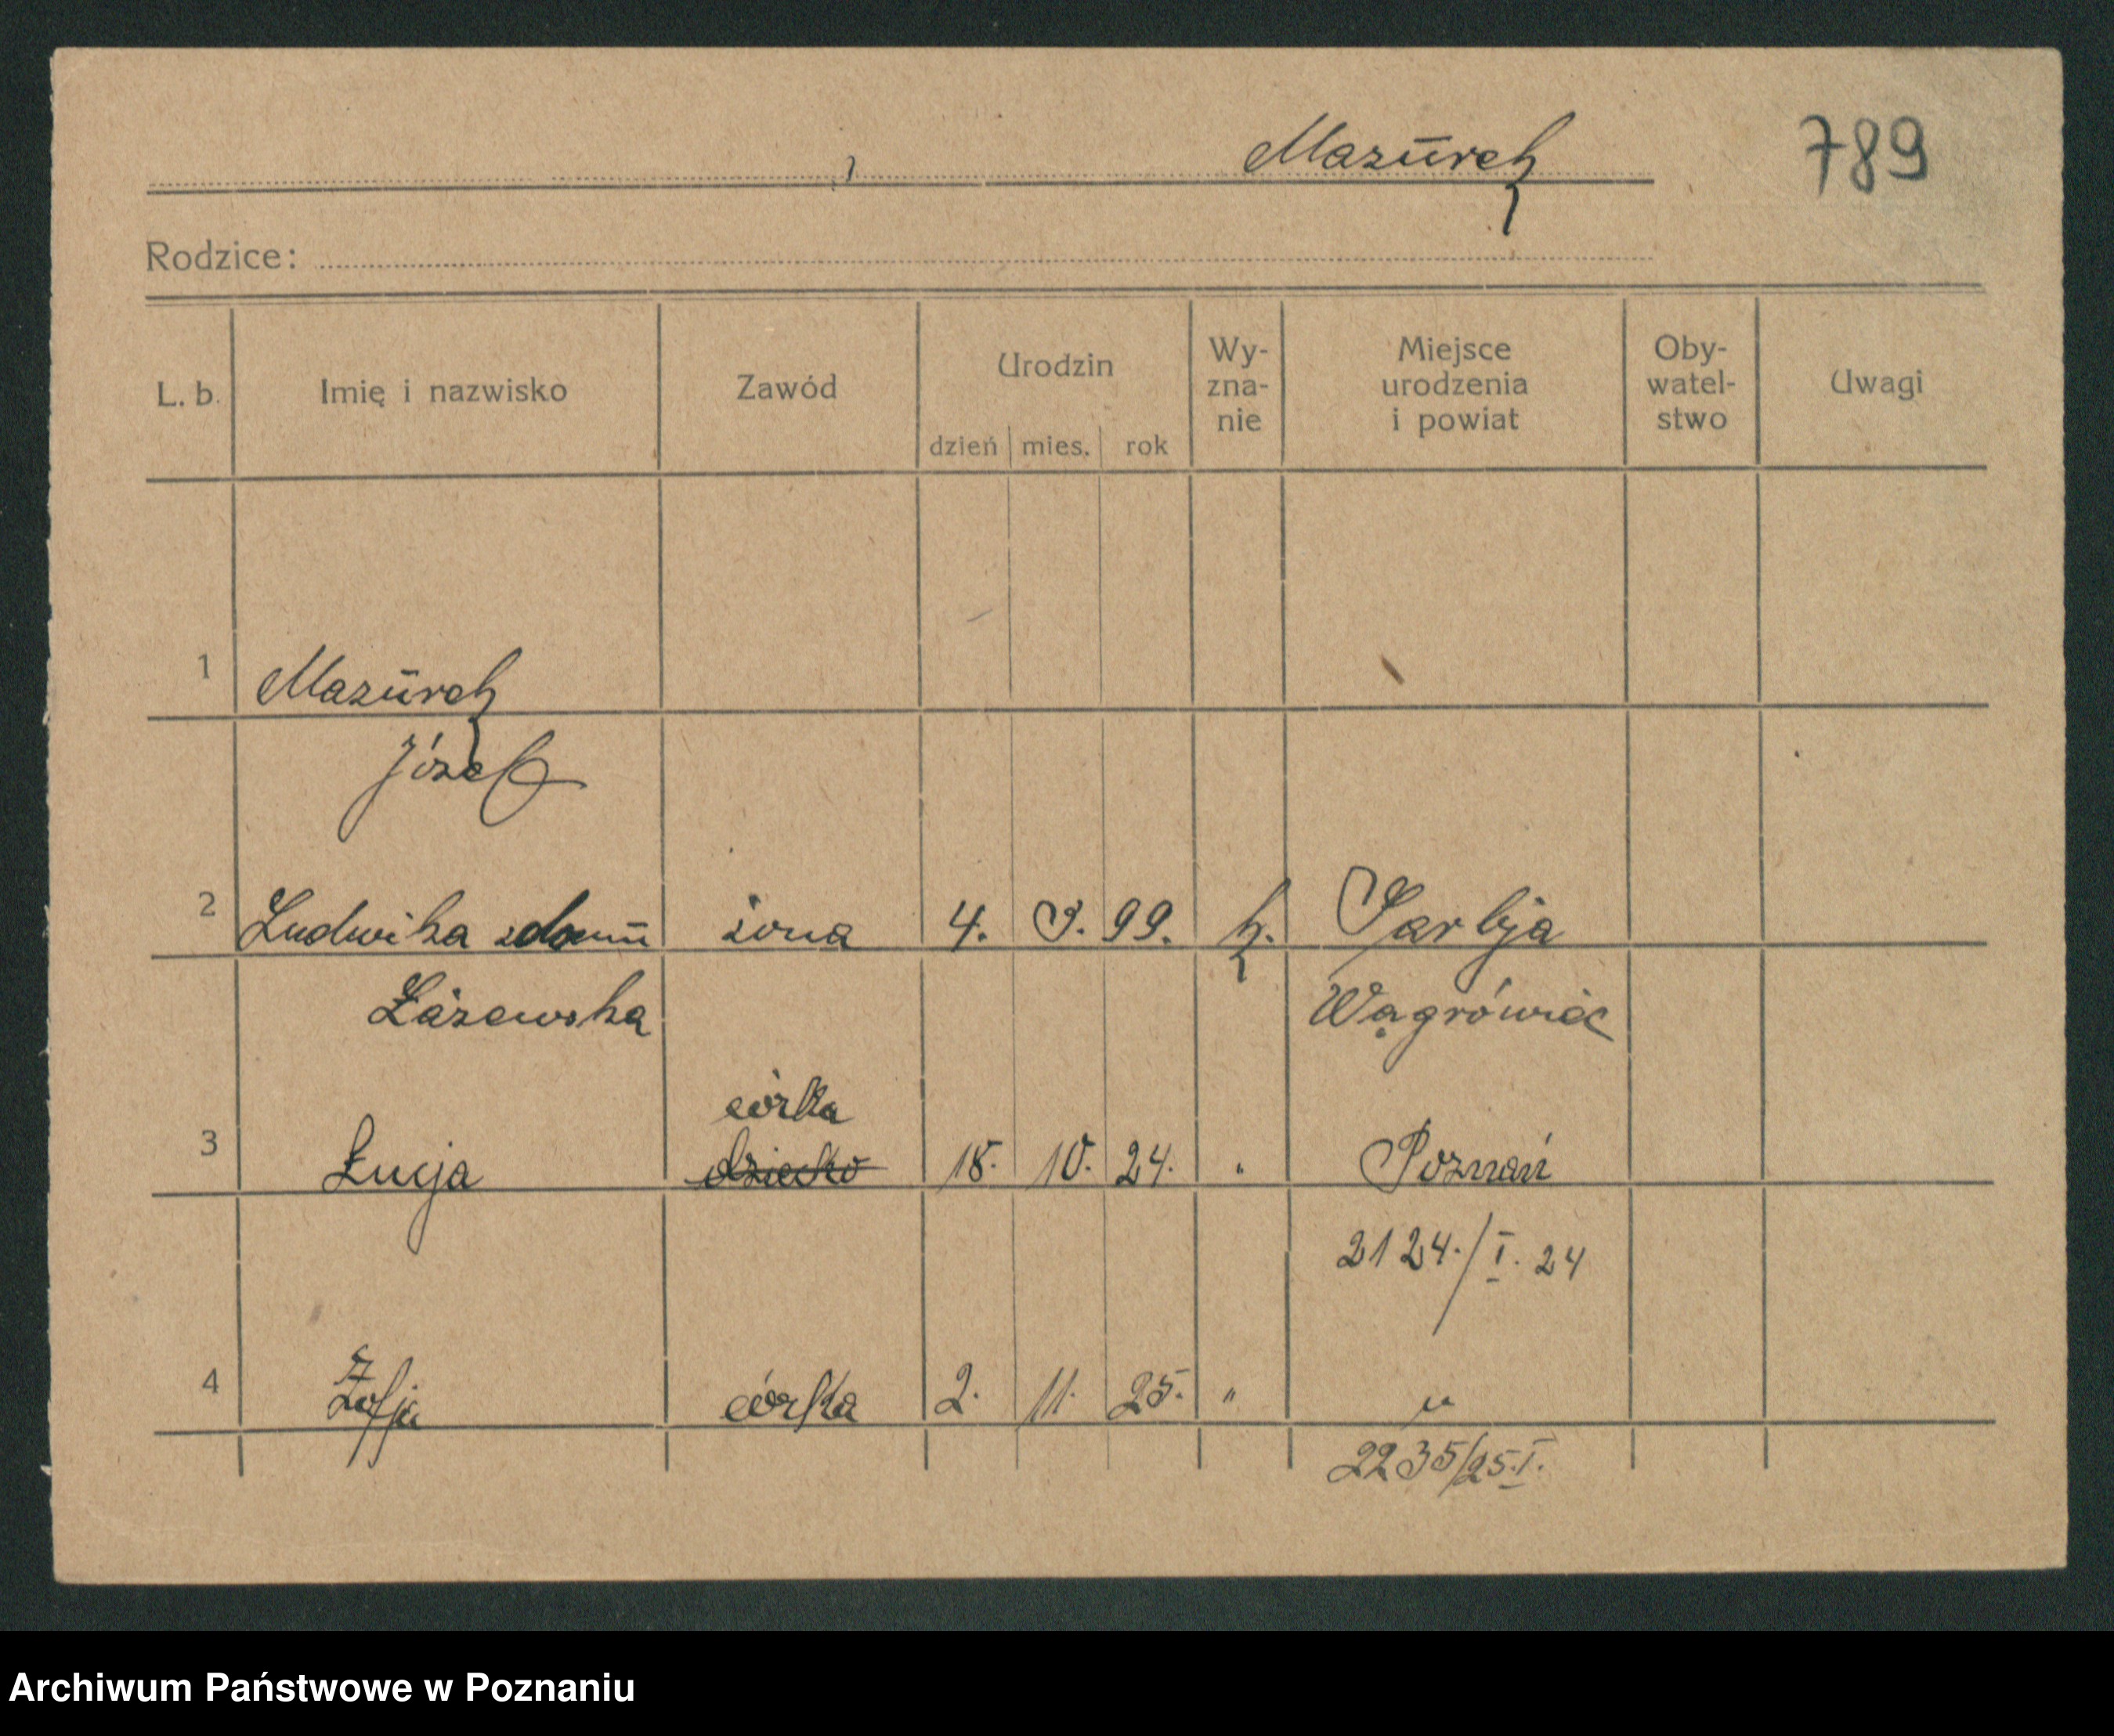 Mazurek 789
Rodzice:
L. b. Imię i nazwisko Zawód Urodzin dzień mies. rok Wy-zna-nie Miejsce urodzenia i powiat Oby-watel-stwo Uwagi
1 Mazurek
Józef
2 Ludwika z domu żona 4. 8. 99. k. Sarbja
Łażewska Wągrówiec
córka
3 Łucja dziecko 18. 10. 24. " Poznań
2124./I. 24
4 Zofja córka 2. 11. 25. " "
2235/25.I.
Archiwum Państwowe w Poznaniu